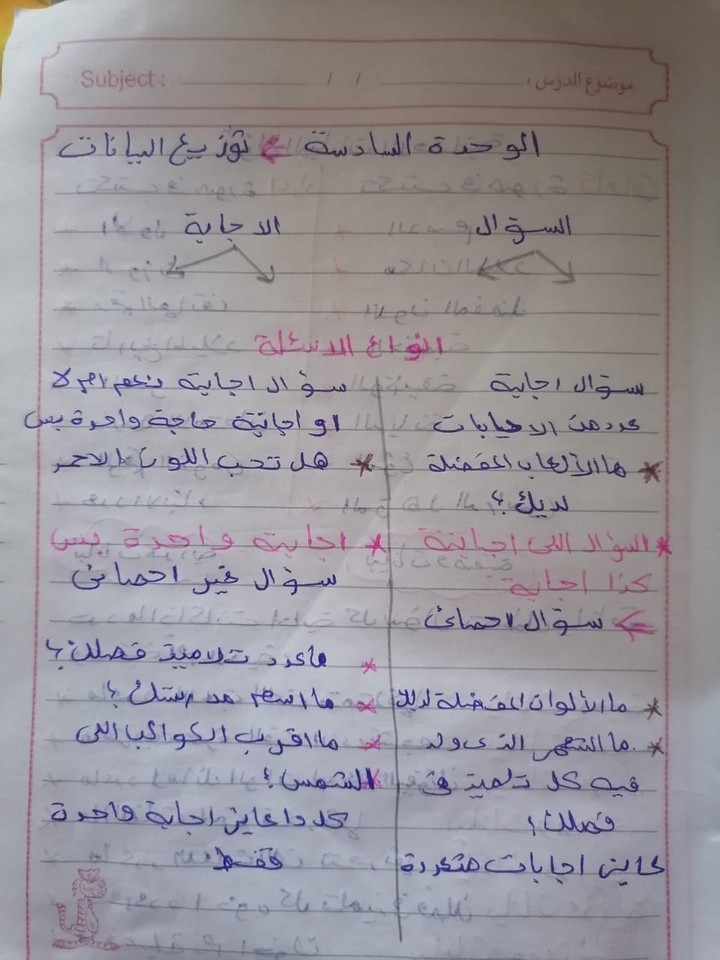 Subject : / / موضوع الدرس :
الوحدة السادسة ← توزيع البيانات
السؤال الاجابة
انواع الاسئلة
سؤال اجابة
عدد من الاجابات
* ما الألعاب المفضلة
لديك ؟
* السؤال اللى اجابتة
كذا اجابة
← سؤال احصائى
* ما الألوان المفضلة لديك
* ما الشهر الذى ولد
فيه كل تلميذ فى
فصلك ؟
عايز اجابات متعددة
سؤال اجابتة بنعم ام لا
او اجابتة حاجة واحدة بس
* هل تحب اللون الاحمر
* اجابتة واحدة بس
سؤال غير احصائى
* ما عدد تلاميذ فصلك ؟
* ما اسم مدرستك ؟
* ما اقرب الكواكب الى
الشمس ؟
كل دا عايز اجابة واحدة
فقط